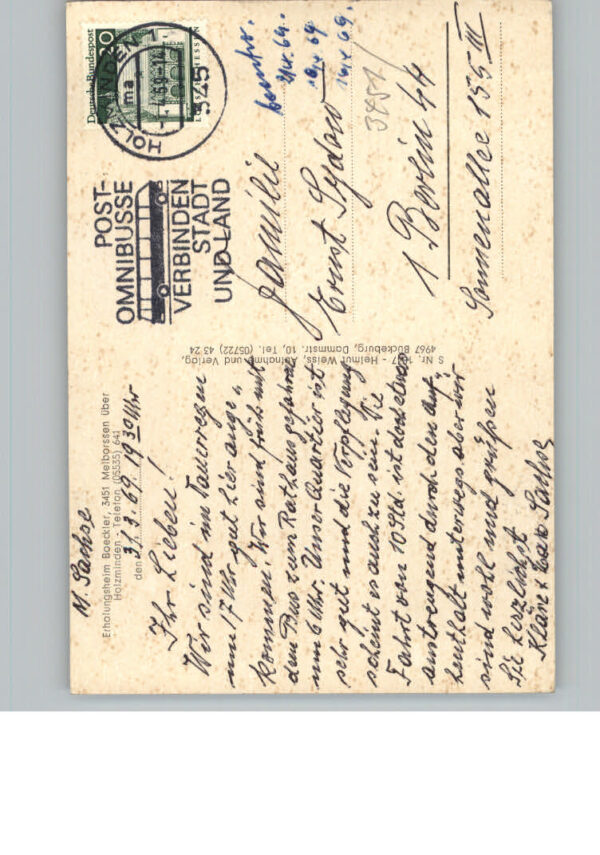 M. Sachse
Erholungsheim Baeckler, 3451 Meiborssen über
Holzminden - Telefon (05535) 641
den 31.3.69. 19 30 Uhr
Ihr Lieben!
Wir sind im Dauerregen
um 17 Uhr gut hier ange-
kommen. Wir sind früh mit
dem Bus zum Rathaus gefahren
um 6 Uhr. Unser Quartier ist
sehr gut und die Verpflegung
scheint es auch zu sein. Die
Fahrt von 10 Std. ist doch etwas
anstrengend durch den Auf-
henthalt unterwegs aber wir
sind wohl und grüßen
Sie herzlichst
Kläre & Max Sachse
S Nr. 1097 - Helmut Weiss, Aufnahme und Verlag,
4967 Bückeburg, Dammstr. 10, Tel. (05722) 43 24
POST-
OMNIBUSSE
VERBINDEN
STADT
UND LAND
HOLZMINDEN 1
ma
-1.4.69-11
345
Deutsche Bundespost
20
LORSCH/HESSEN
beantw.
69.
69
69.
3451
Familie
Ernst Sydow
1 Berlin 44
Sonnenallee 155 III